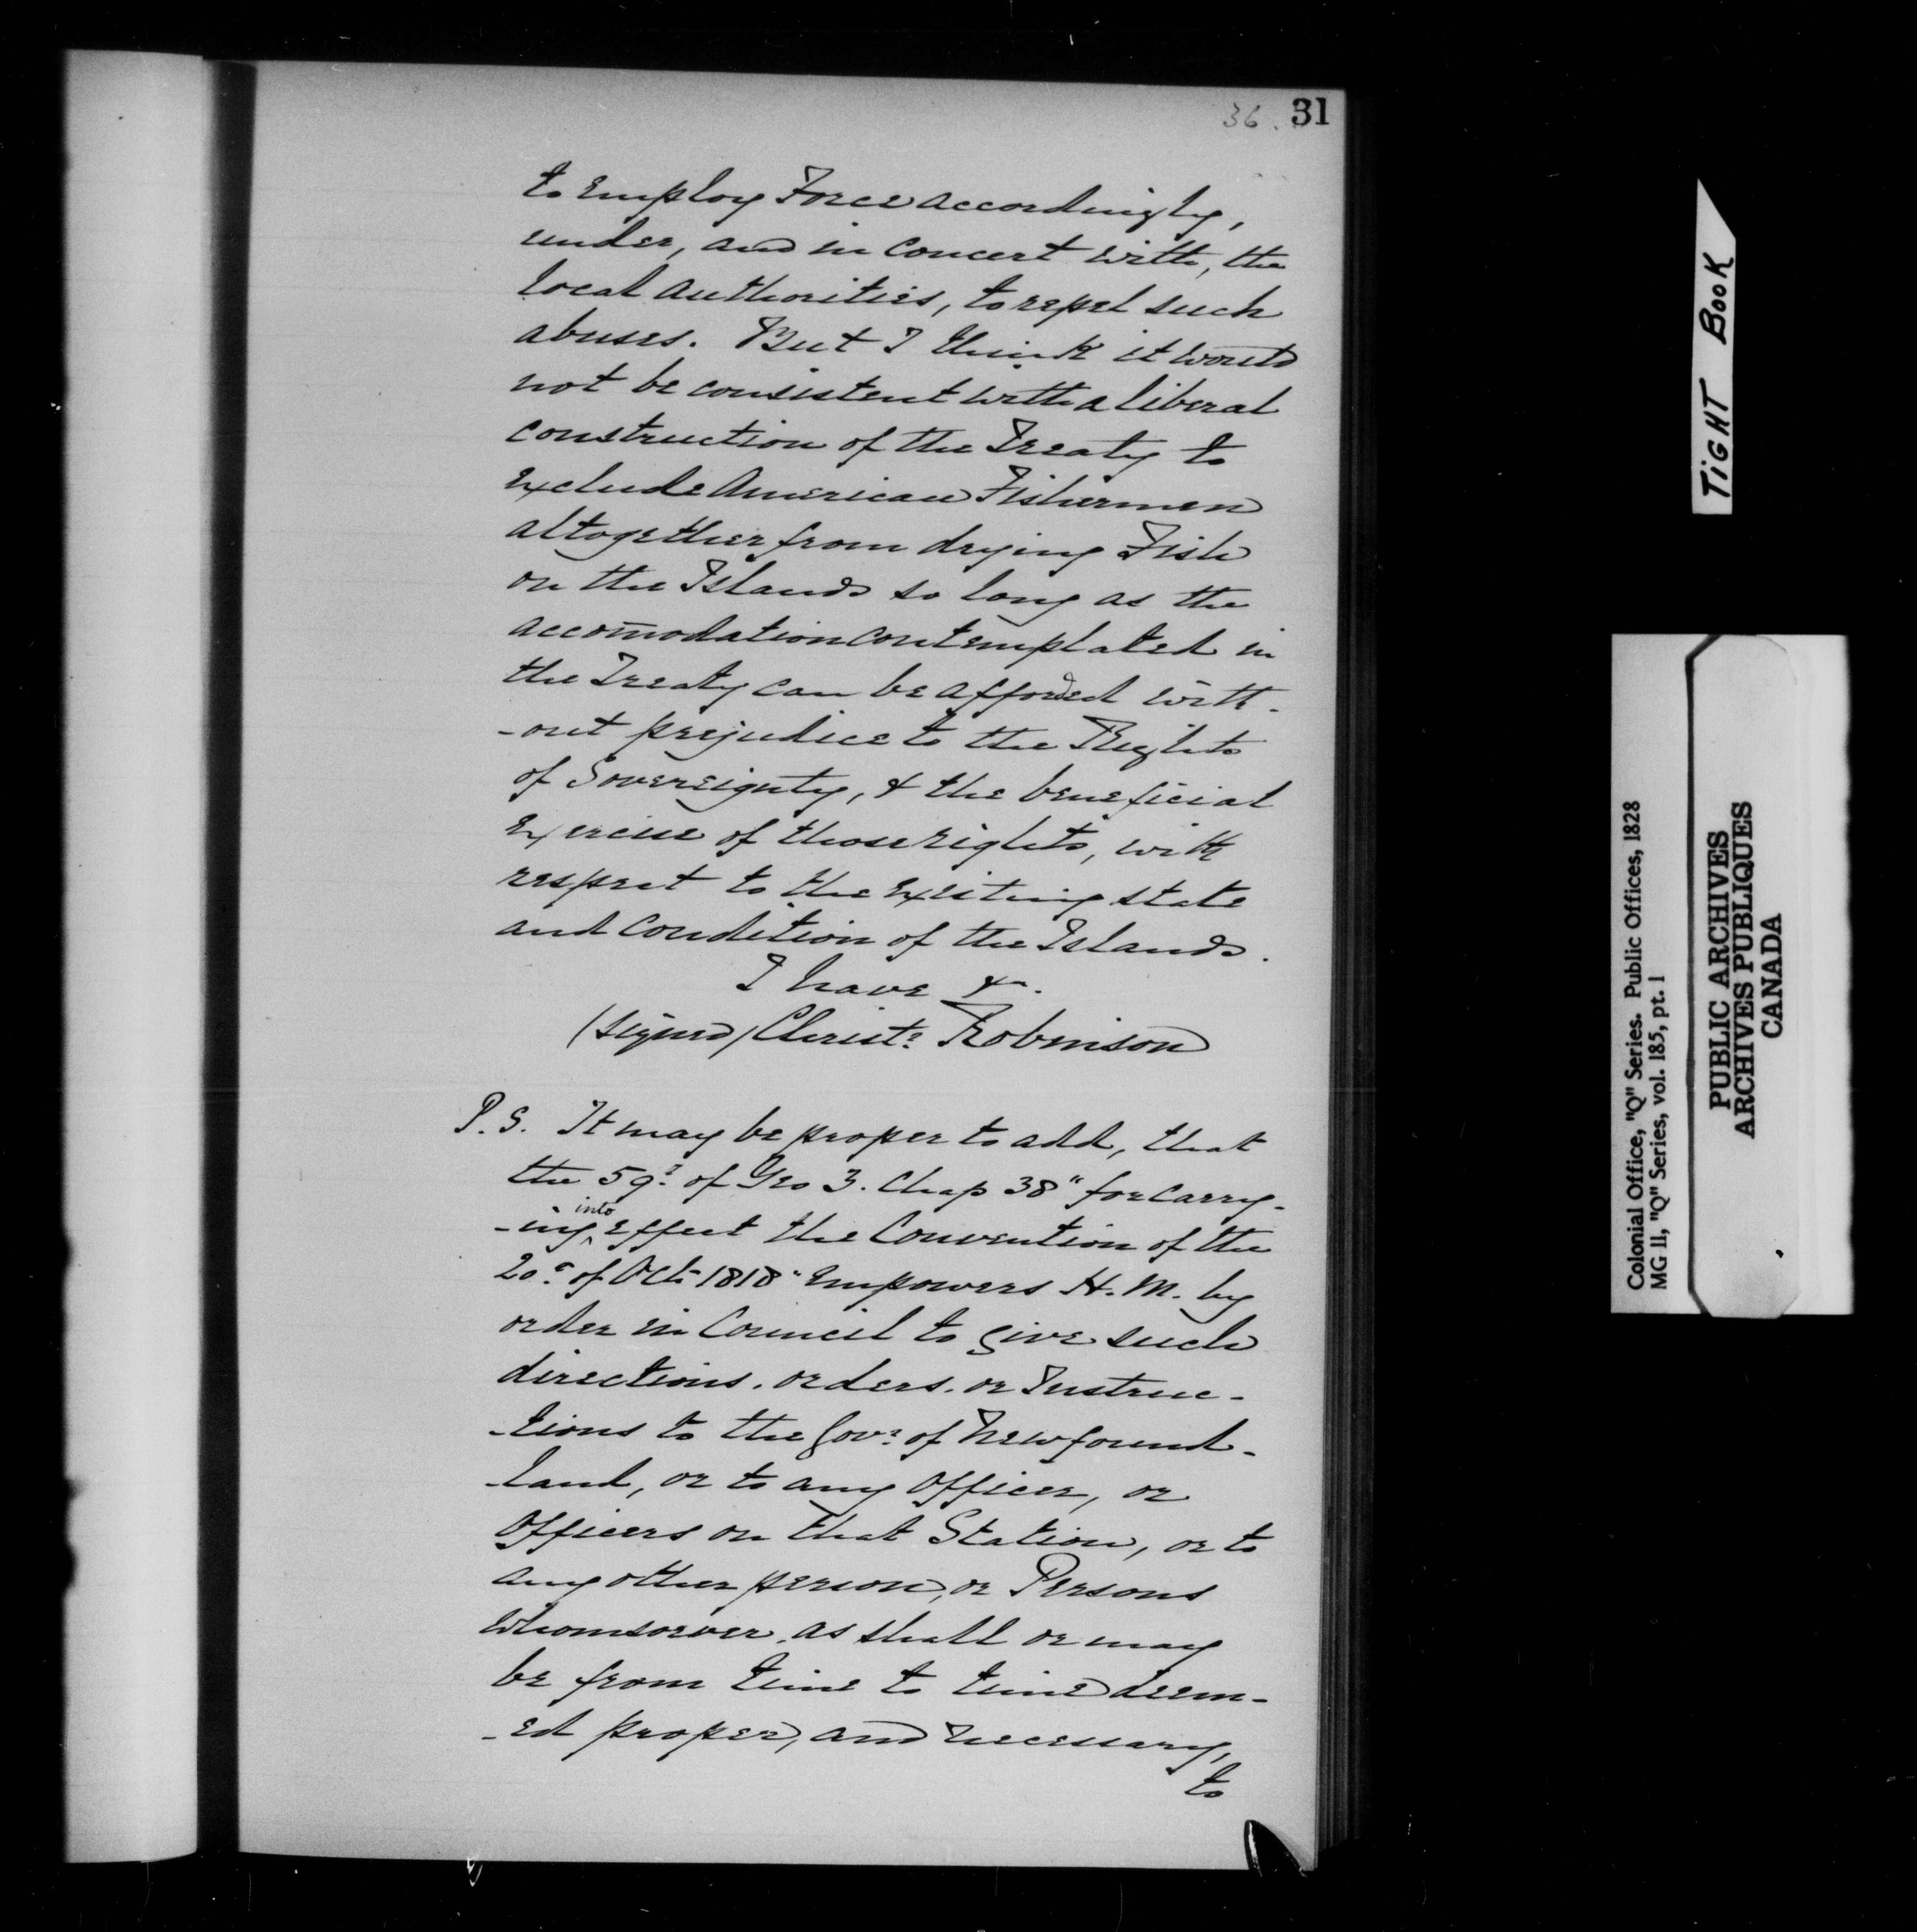 36. 31
to employ Force accordingly,
under, and in concert with, the
local authorities, to repel such
abuses. But I think it would
not be consistent with a liberal
construction of the Treaty to
exclude American Fishermen
altogether from drying Fish
on the Islands so long as the
accom̄odation contemplated in
the Treaty can be afforded with-
-out prejudice to the Rights
of Sovereignty, & the beneficial
exercise of those rights, with
respect to the existing state
and condition of the Islands.
I have &c.
(signed) Christr Robinson
P.S. It may be proper to add, that
the 59th of Geo 3. Chap 38 "for carry-
-ing into effect the Convention of the
20th of Oct 1818" empowers H.M. by
order in Council to give such
directions, orders, or Instruc-
-tions to the Govr of Newfound-
-land, or to any Officer, or
Officers on that Station, or to
any other person, or Persons
whomsoever, as shall or may
be from time to time deem-
-ed proper, and necessary,
to
TIGHT BOOK
Colonial Office, "Q" Series. Public Offices, 1828
MG 11, "Q" Series, vol. 185, pt. 1
PUBLIC ARCHIVES
ARCHIVES PUBLIQUES
CANADA